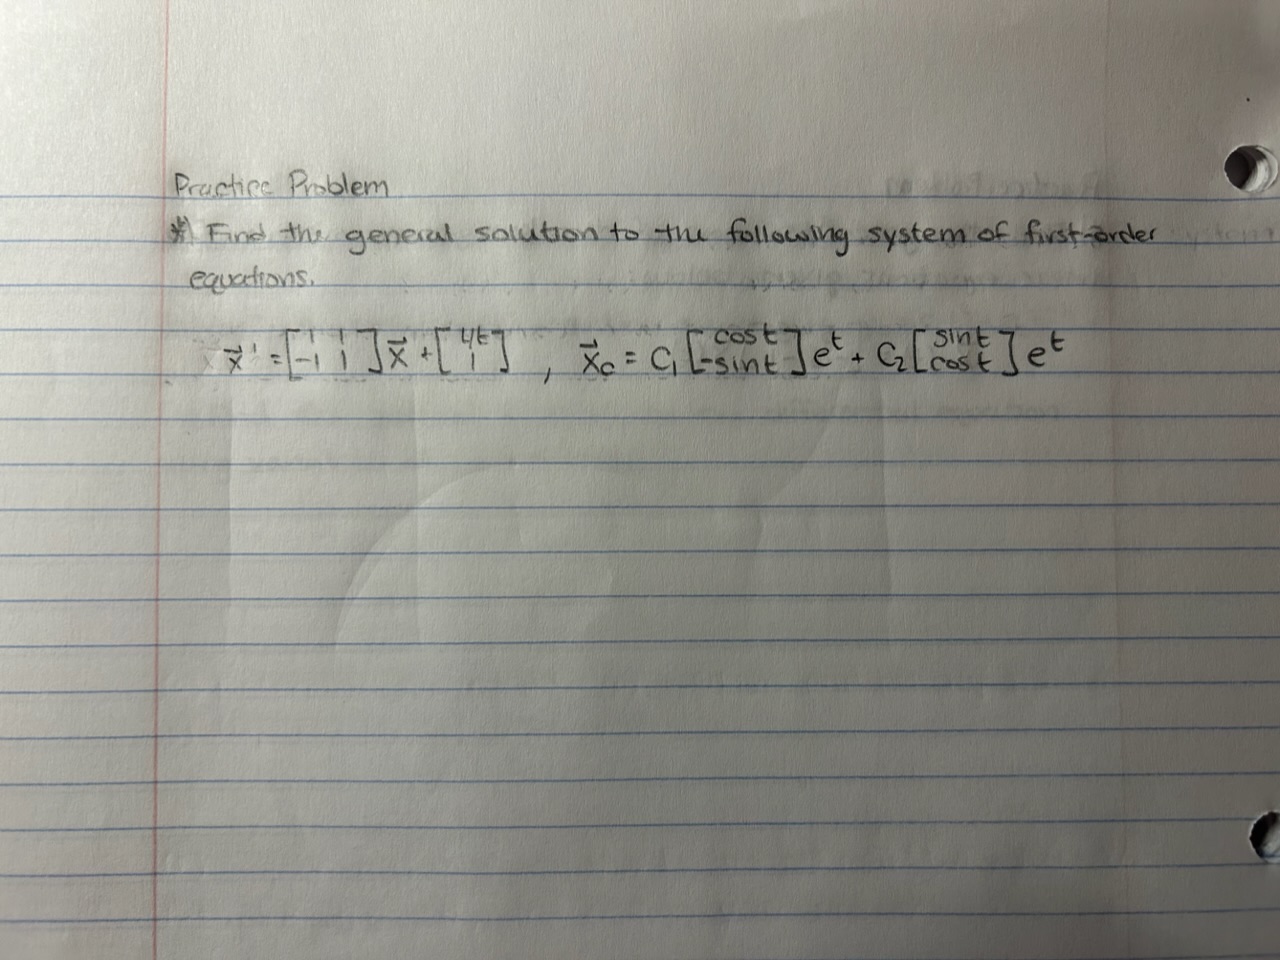 Practice Problem
*) Find the general solution to the following system of first-order
equations.
x⃗' = [1 1; -1 1] x⃗ + [1/t; 1] , x⃗c = C₁ [cost; -sint] eᵗ + C₂ [sint; cost] eᵗ